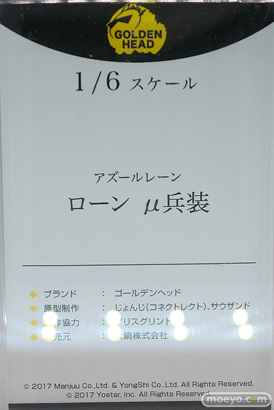 GOLDEN
HEAD
1/6 スケール
アズールレーン
ローン μ兵装
◆ ブランド : ゴールデンヘッド
◆ 原型制作 : じょんじ(コネクトレクト)、サウザンド
作協力 : リスグリント
元 : 株式会社
© 2017 Manjuu Co.,Ltd. & YongShi Co.,Ltd. All Rights Reserved.
© 2017 Yostar, Inc. All Rights Reserved.
moeyo.com